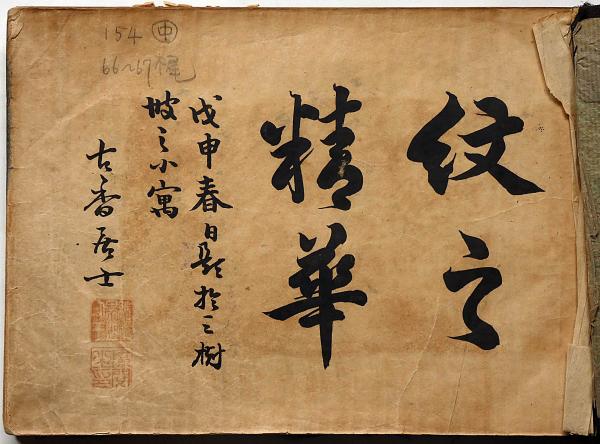 紋之
精華
戊申春日題於三樹
坡之小寓
古香居士
154 中
66~67 梶